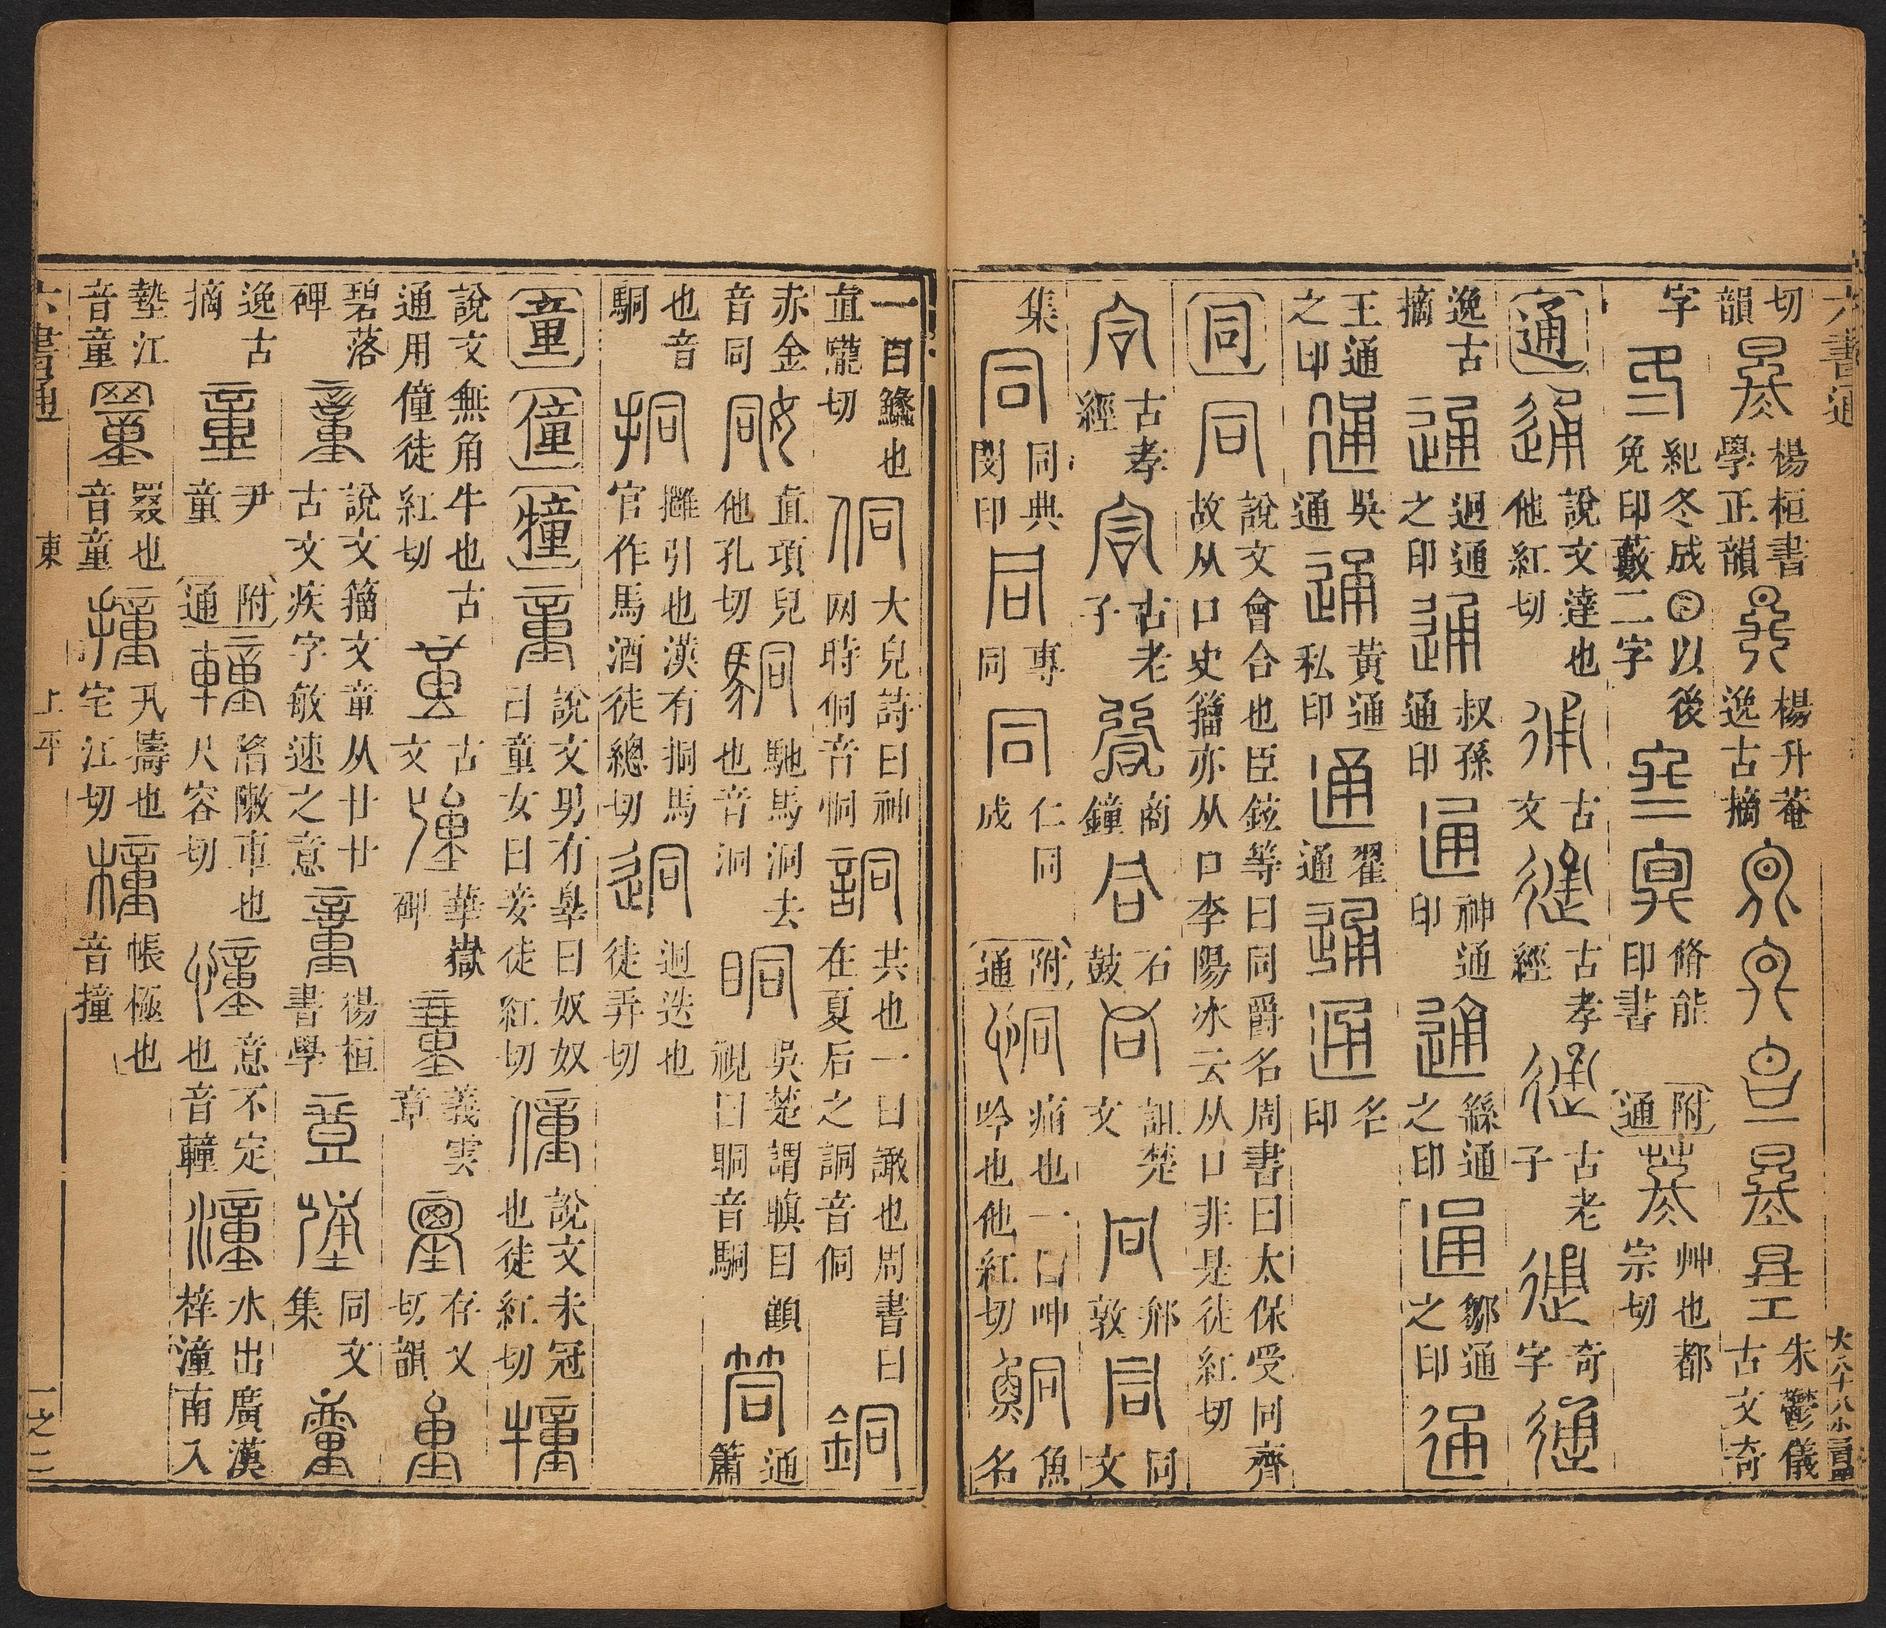 六書通
切韻 楊桓書學正韻 楊升菴逸古摘 朱鬱儀古文奇
字 紀冬成日以後免印藪二字 脩能印書 附通 苳 艸也都宗切
通 通 說文達也他紅切 古文 古孝經 古老子 奇字 通
逸古摘 通 迥通之印 通 叔孫通印 通 神通印 通 緜通之印 通 鄒通之印 通
王通之印 通 吳通 通 黃通私印 通 翟通 通 通 名印
同 同 說文會合也臣鉉等曰同爵名周書曰太保受同齊故从口史籀亦从口李陽冰云从口非是徒紅切
古孝經 古老子 商鐘 石鼓 同 詛楚文 同 䣙敦 同 同文
集 同 同典閔印 同 專同 同 仁同成 附通 恫 痛也一曰呻吟也他紅切 鮦 魚名
一曰鱶也直隴切 侗 大皃詩曰神罔時侗音恫 詷 共也一曰譀也周書曰在夏后之詷音侗 銅
赤金音同 姛 直項皃他孔切 駧 馳馬洞去也音洞 眮 吳楚謂瞋目顧視曰眮音駧 筒 通簫
也音駧 挏 攤引也漢有挏馬官作馬酒徒總切 迵 迵迭也徒弄切
童 僮 犝 童 說文男有辠曰奴奴曰童女曰妾徒紅切 僮 說文未冠也徒紅切 犝
說文無角牛也古通用僮徒紅切 古文 華嶽碑 義雲章 存乂切韻
碧落碑 說文籀文童从廿廿古文疾字敏速之意 楊桓書學 同文集
逸古摘 童 尹童 附通 䡴 陷敶車也尺容切 憧 意不定也音䡴 潼 水出廣漢梓潼南入
墊江音童 罿 罬也音童 撞 丮擣也宅江切 橦 帳極也音撞
六書通 東 上平 一之二